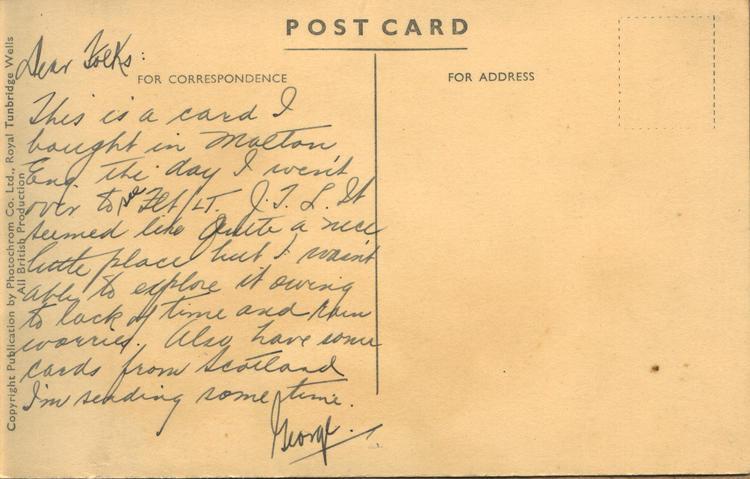 POST CARD
Dear Folks:
FOR CORRESPONDENCE
FOR ADDRESS
This is a card I
bought in Malton
Eng. the day I went
over to see Flt/LT. J.T.L. It
seemed like quite a nice
little place but I wasn't
able to explore it owing
to lack of time and
worries. Also have some
cards from Scotland
I'm sending some time.
George.
Copyright Publication by Photochrom Co. Ltd., Royal Tunbridge Wells
All British Production